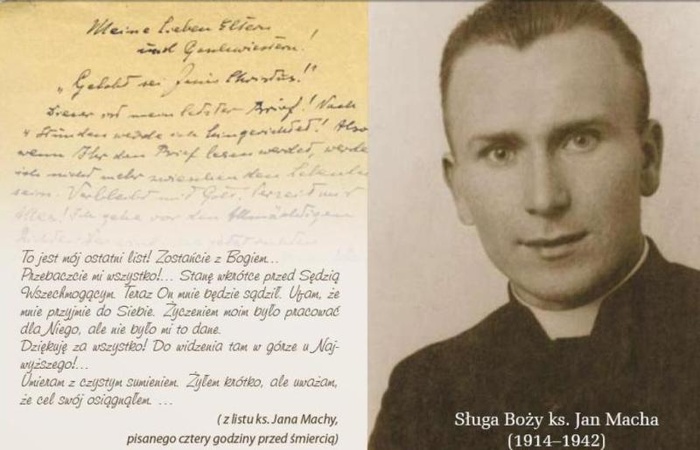 Meine Lieben Eltern
und Geschwister!
"Gelobt sei Jesus Christus!"
Dieses ist mein letzter Brief! Nach
4 Stunden werde ich hingerichtet! Also
wenn Ihr den Brief lesen werdet, werde
ich nicht mehr zwischen den Lebenden
sein. Verbleibt mit Gott! Verzeiht mir
Alles! Ich gehe vor den Allmächtigen
To jest mój ostatni list! Zostańcie z Bogiem...
Przebaczcie mi wszystko!... Stanę wkrótce przed Sędzią
Wszechmogącym. Teraz On mnie będzie sądził. Ufam, że
mnie przyjmie do Siebie. Życzeniem moim było pracować
dla Niego, ale nie było mi to dane.
Dziękuję za wszystko! Do widzenia tam w górze u Naj-
wyższego!...
Umieram z czystym sumieniem. Żyłem krótko, ale uważam,
że cel swój osiągnąłem. ...
( z listu ks. Jana Machy,
pisanego cztery godziny przed śmiercią)
Sługa Boży ks. Jan Macha
(1914–1942)